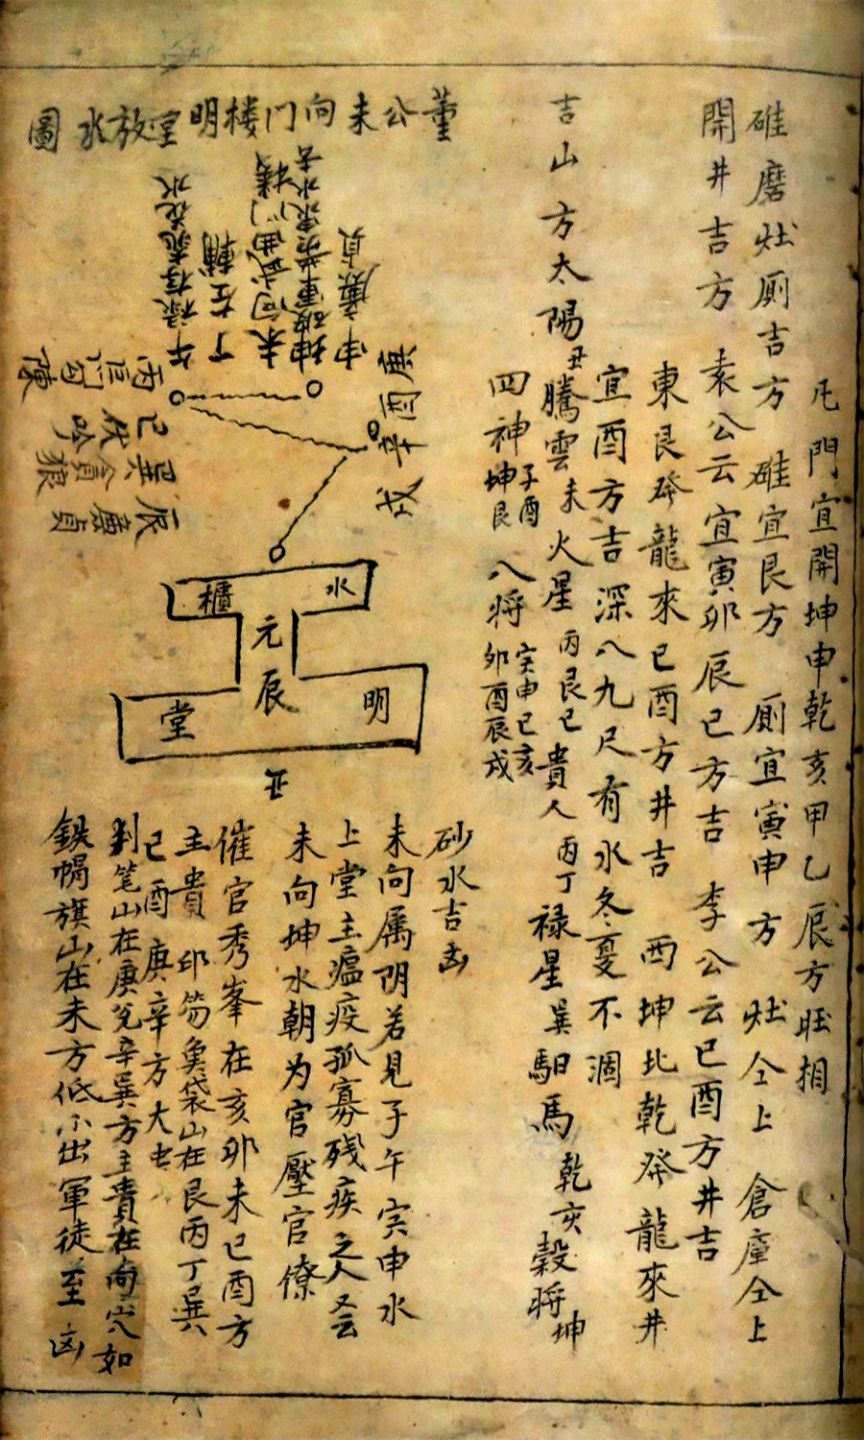 凡門宜開坤申乾亥甲乙辰方旺相
碓磨灶厠吉方 碓宜艮方 厠宜寅申方 灶仝上 倉庫仝上
開井吉方 袁公云宜寅卯辰巳方吉 李公云巳酉方井吉
東艮發龍來巳酉方井吉 西坤北乾發龍來井
宜酉方吉深八九尺有水冬夏不涸
吉山方太陽丑騰雲未火星丙艮巳貴人丙丁祿星巽馹馬乾亥穀將坤
四神子酉坤艮八將寅申巳亥卯酉辰戌
董公未向門楼明堂放水圖
申廉貞
坤破軍
未向武曲門楼
丁左輔
午祿存
戌
辛
酉
丙
巳
巽貪狼
辰廉貞
水櫃
元辰
明堂
丑
砂水吉凶
未向属阴若見子午寅申水
上堂主瘟疫孤寡残疾之人又云
未向坤水朝为官壓官僚
催官秀峯在亥卯未巳酉方
主貴 印笏魚袋山在艮丙丁巽
巳酉庚辛方大吉
判笔山在庚兌辛巽方主貴在向穴如
鉄帽旗山在未方低小出軍徒至凶